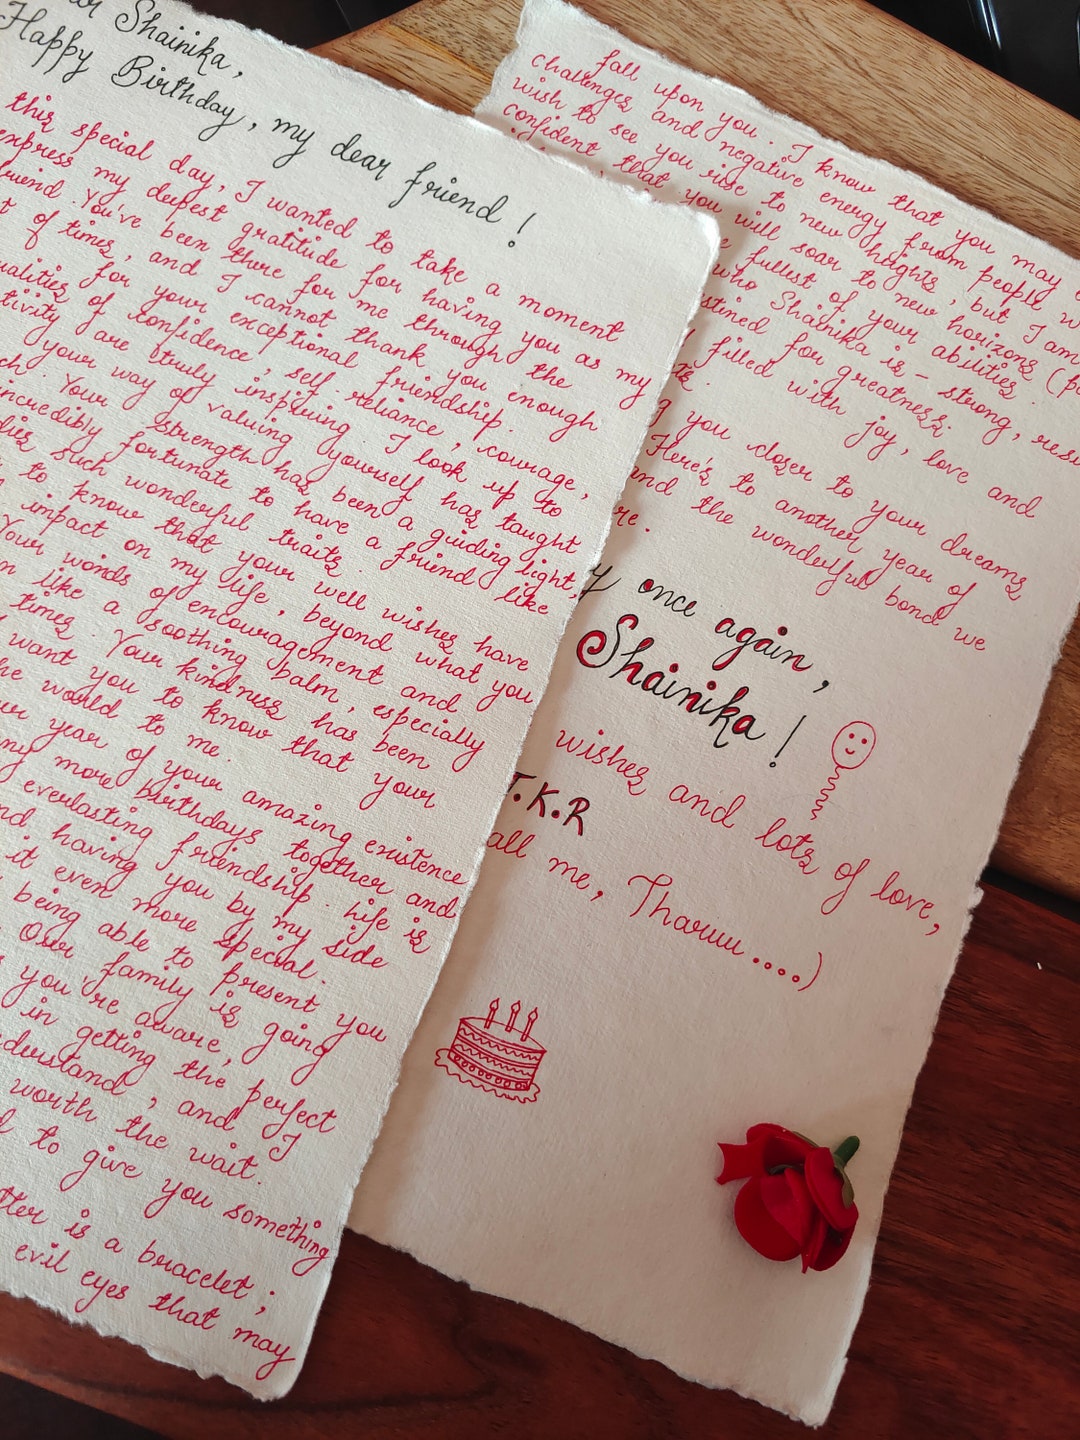 Shainika,
Happy Birthday, my dear friend!
this special day, I wanted to take a moment
express my deepest gratitude for having you as my
friend. You've been there for me through the
of times, and I cannot thank you enough
for your exceptional friendship.
qualities of confidence, self-reliance, courage,
are truly inspiring. I look up to
your way of valuing yourself has taught
Your strength has been a guiding light,
incredibly fortunate to have a friend like
such wonderful traits.
to know that your well wishes have
impact on my life, beyond what you
Your words of encouragement and
like a soothing balm, especially
times. Your kindness has been
want you to know that your
world to me.
year of your amazing existence
more birthdays together and
everlasting friendship. Life is
having you by my side
it even more special.
being able to present you
Our family is going
you're aware,
in getting the perfect
understand, and I
worth the wait.
to give you something
is a bracelet;
evil eyes that may
fall upon you. I know that you may
challenges and negative energy from people
wish to see you rise to new heights, but I am
confident that you will soar to new horizons
fullest of your abilities.
who Shainika is - strong,
destined for greatness.
filled with joy, love and
you closer to your dreams
Here's to another year of
and the wonderful bond we
once again,
Shainika!
wishes and lots of love,
T.K.R
all me, Tharuu....)